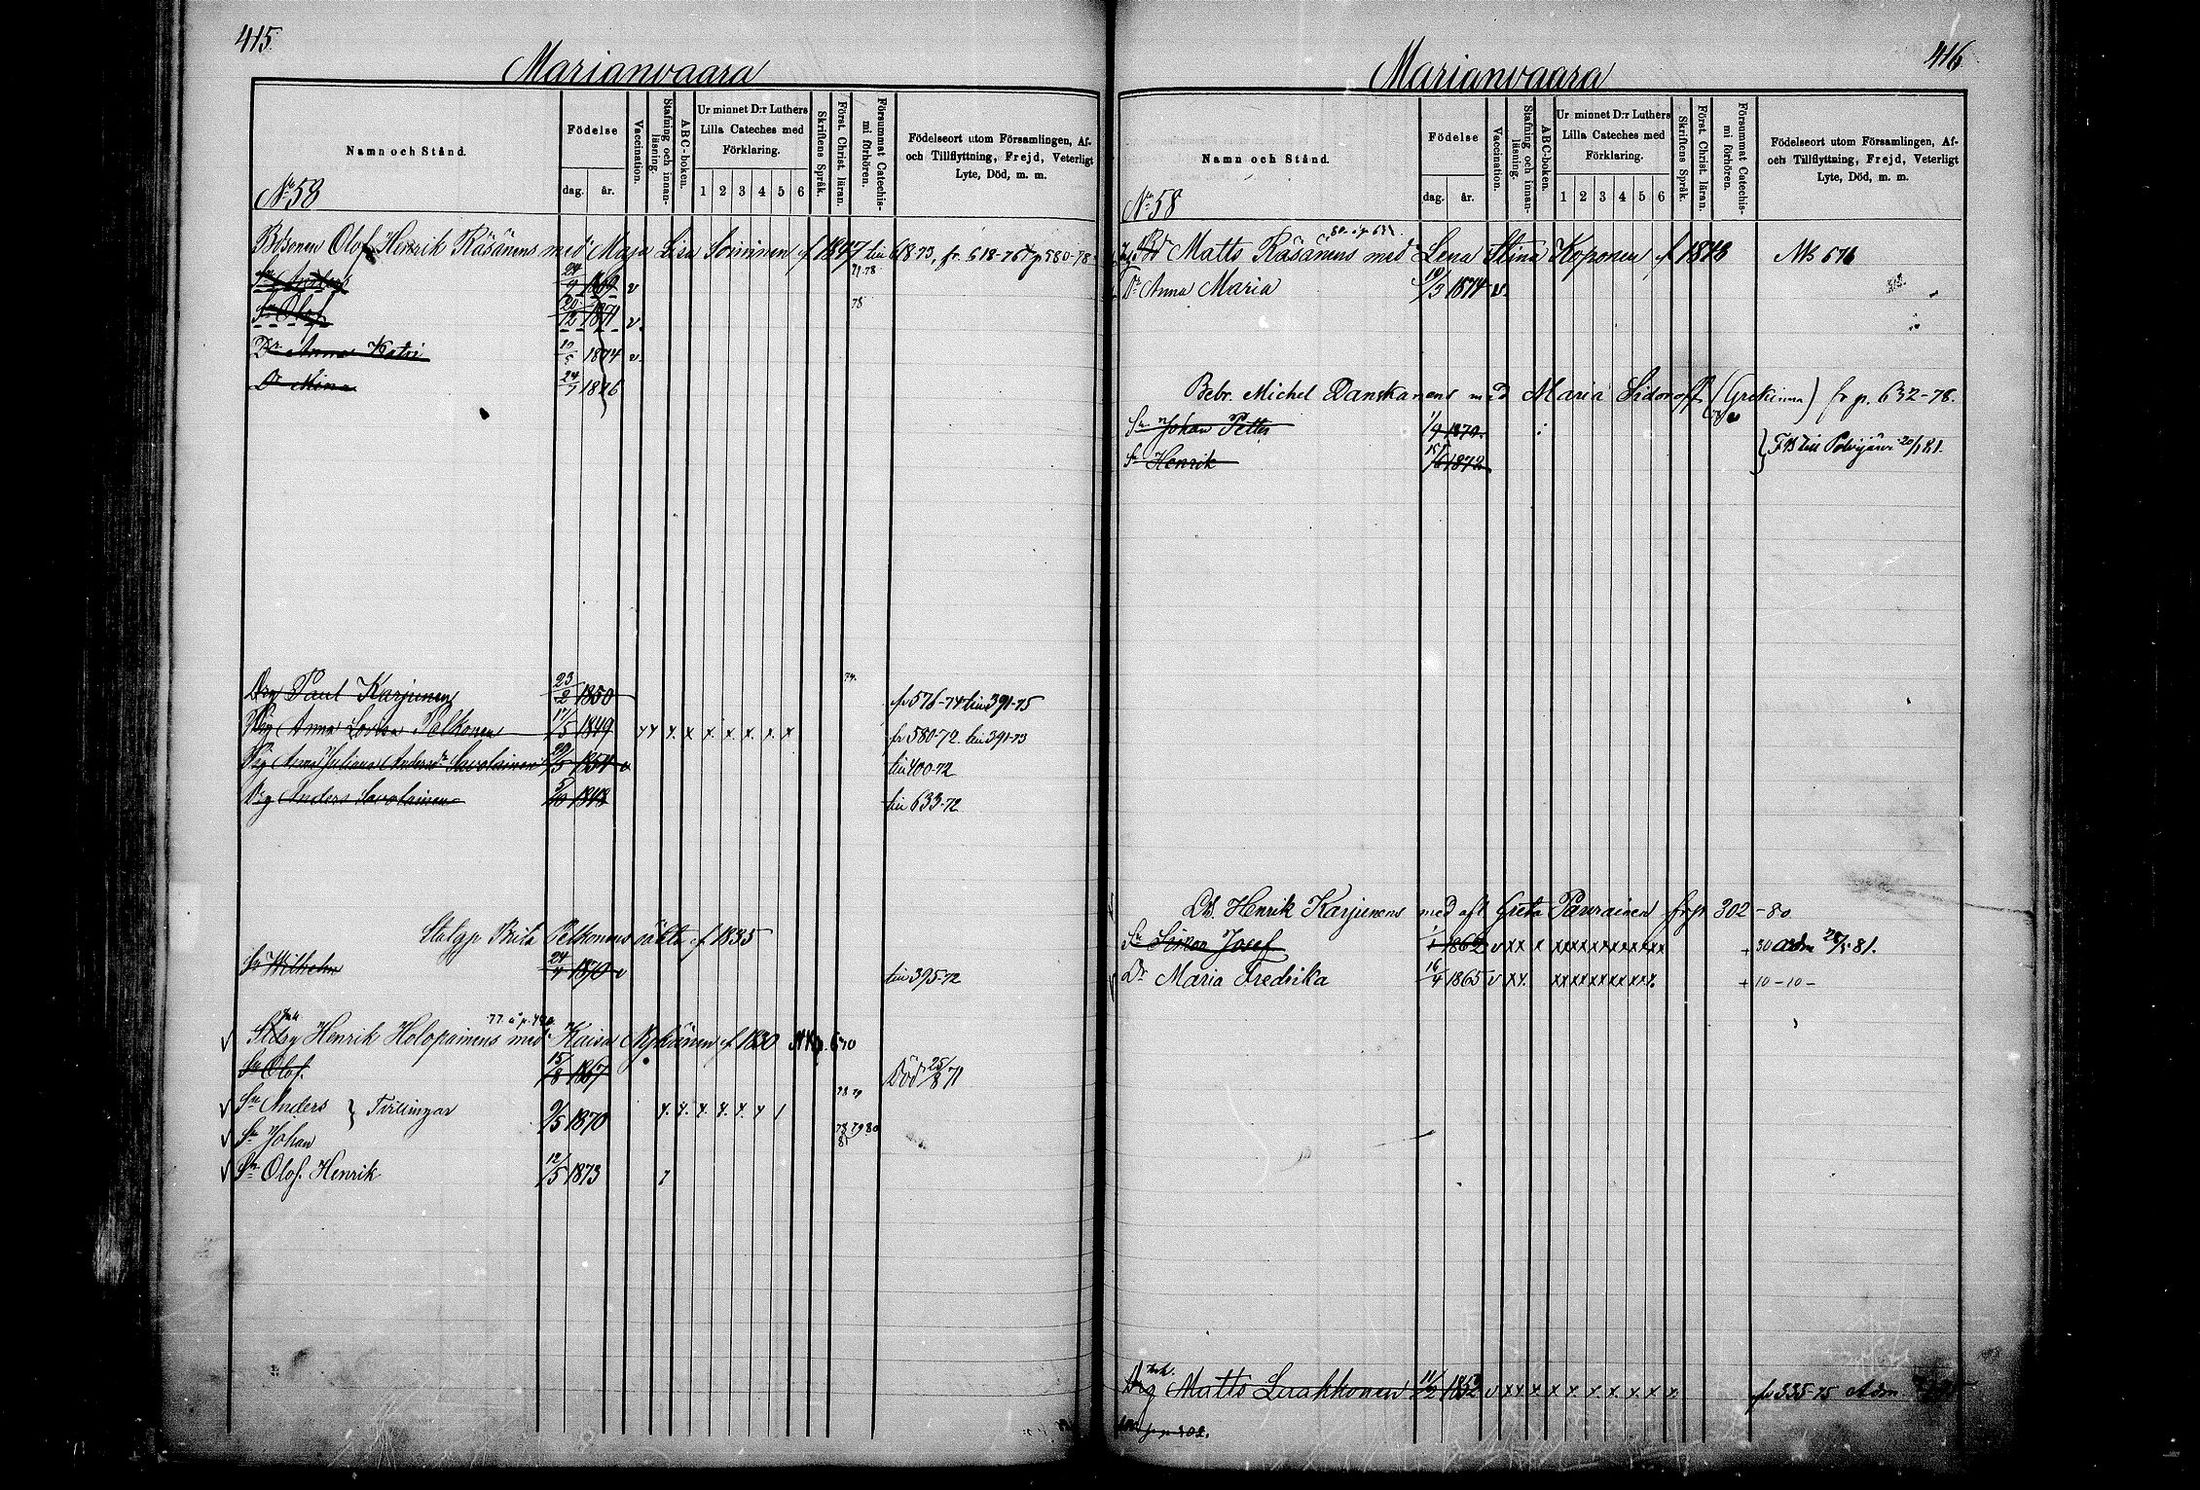 415
Marianvaara
Namn och Stånd.
Födelse
dag.
år.
Vaccination.
Stafning och innan-
läsning.
ABC-boken.
Ur minnet D:r Luthers
Lilla Cateches med
Förklaring.
1 2 3 4 5 6
Skriftens Språk.
Först. Christ. läran.
Försummat Catechis-
mi förhören.
Födelseort utom Församlingen, Af-
och Tillflyttning, Frejd, Veterligt
Lyte, Död, m. m.
No 58
Olof Henrik Räsänens med Maja Lisa f 1847 618-73, fr. 618-76 p 580-78
77.78
Sn Anders 24/9 1869 v
78
Sn Olof 12 1871 v.
Dr Anna Katri 10/5 1874 v.
Dr Mina 24/7 1876
74.
Drg Paul Karjunen 23/2 1850 fr 576-74 till 391-75
Pig Anna Lovisa Palkonen 17/5 1849 x x x. x x. x. x. x. x fr 580-72. till 391-73
Pig Anna Juliana Andersdr Savolainen 29/5 1854 v till 400-72
Drg Anders Savolainen 5/10 1848 till 633-72
Brita Pelkonens f 1835
Sn Wilhelm 24/4 1870 v till 395-72
77 å p. 420
Henrik Holopainens med Kaisa f 1830 p. 670
Sn Olof. 15/8 1867 Död 25/8 71
78 79
Sn Anders } Tvillingar 9/5 1870 x. x. x. x. x. x /
Sn Johan 78 79 80
81
Sn Olof Henrik 12/5 1873
416
Marianvaara
Namn och Stånd.
Födelse
dag.
år.
Vaccination.
Stafning och innan-
läsning.
ABC-boken.
Ur minnet D:r Luthers
Lilla Cateches med
Förklaring.
1 2 3 4 5 6
Skriftens Språk.
Först. Christ. läran.
Försummat Catechis-
mi förhören.
Födelseort utom Församlingen, Af-
och Tillflyttning, Frejd, Veterligt
Lyte, Död, m. m.
No 58
Matts Räsänens med Lena Stina Koponen f 1848 Nk 671
Dr Anna Maria 10/3 1874 v.
Bebr. Michel Danskanens med Maria Sidoroff (Grekinna) fr p. 632-78.
Sn Johan Petter 1/9 1870.
Sn Henrik 15/6 1872 } FB till Polvijärvi 20/1 81.
Henrik Karjunens med afl Greta Paurainen fr p 302-80
Sn Simon Josef 1/1 1862 v xx x xxxxxxxxxxx + 30 adm 28/5 81.
Dr Maria Fredrika 16/4 1865 v xx. xxxxxxxxxx. + 10 - 10 -
Drg Matts Luukkonen 11/2 1852 v xx x x x x x x x x fr 335-75 Adm.